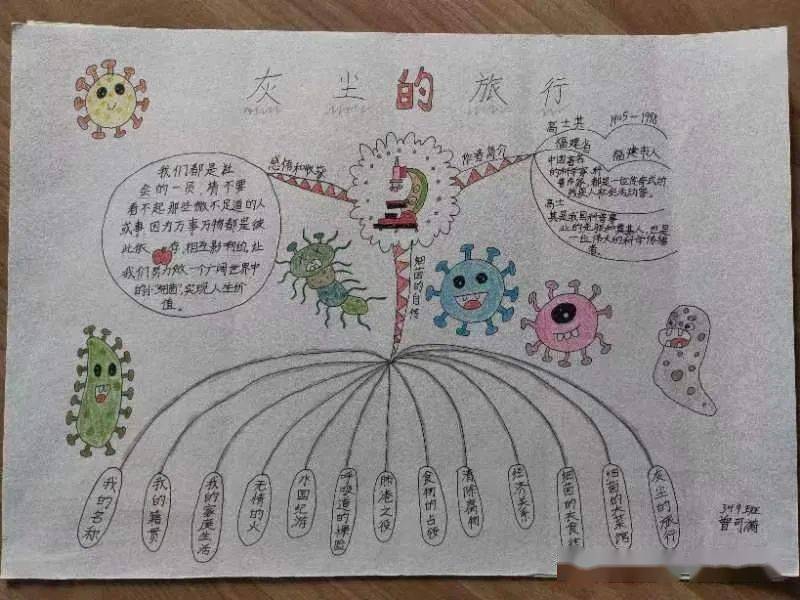 灰尘的旅行
感悟和收获
作者简介
我们都是社
会的一员,请不要
看不起那些微不足道的人
或事因为万事万物都是彼
此依 存,相互影响的,让
我们努力做一个广阔世界中
的小"细菌",实现人生价
值。
高士其
1905-1988
福建省
福建书人
中国著名
的科学家科
普作家,都是一位传奇式的
高士
其是我国科普事
一位伟大的科学传播
细菌的自传
我的名称
我的籍贯
我的家庭生活
无情的火
水国纪游
呼吸道的探险
肺港之役
食物的占领
清除腐物
经济关系
细菌的大菜馆
灰尘的旅行
349班
曾可潇